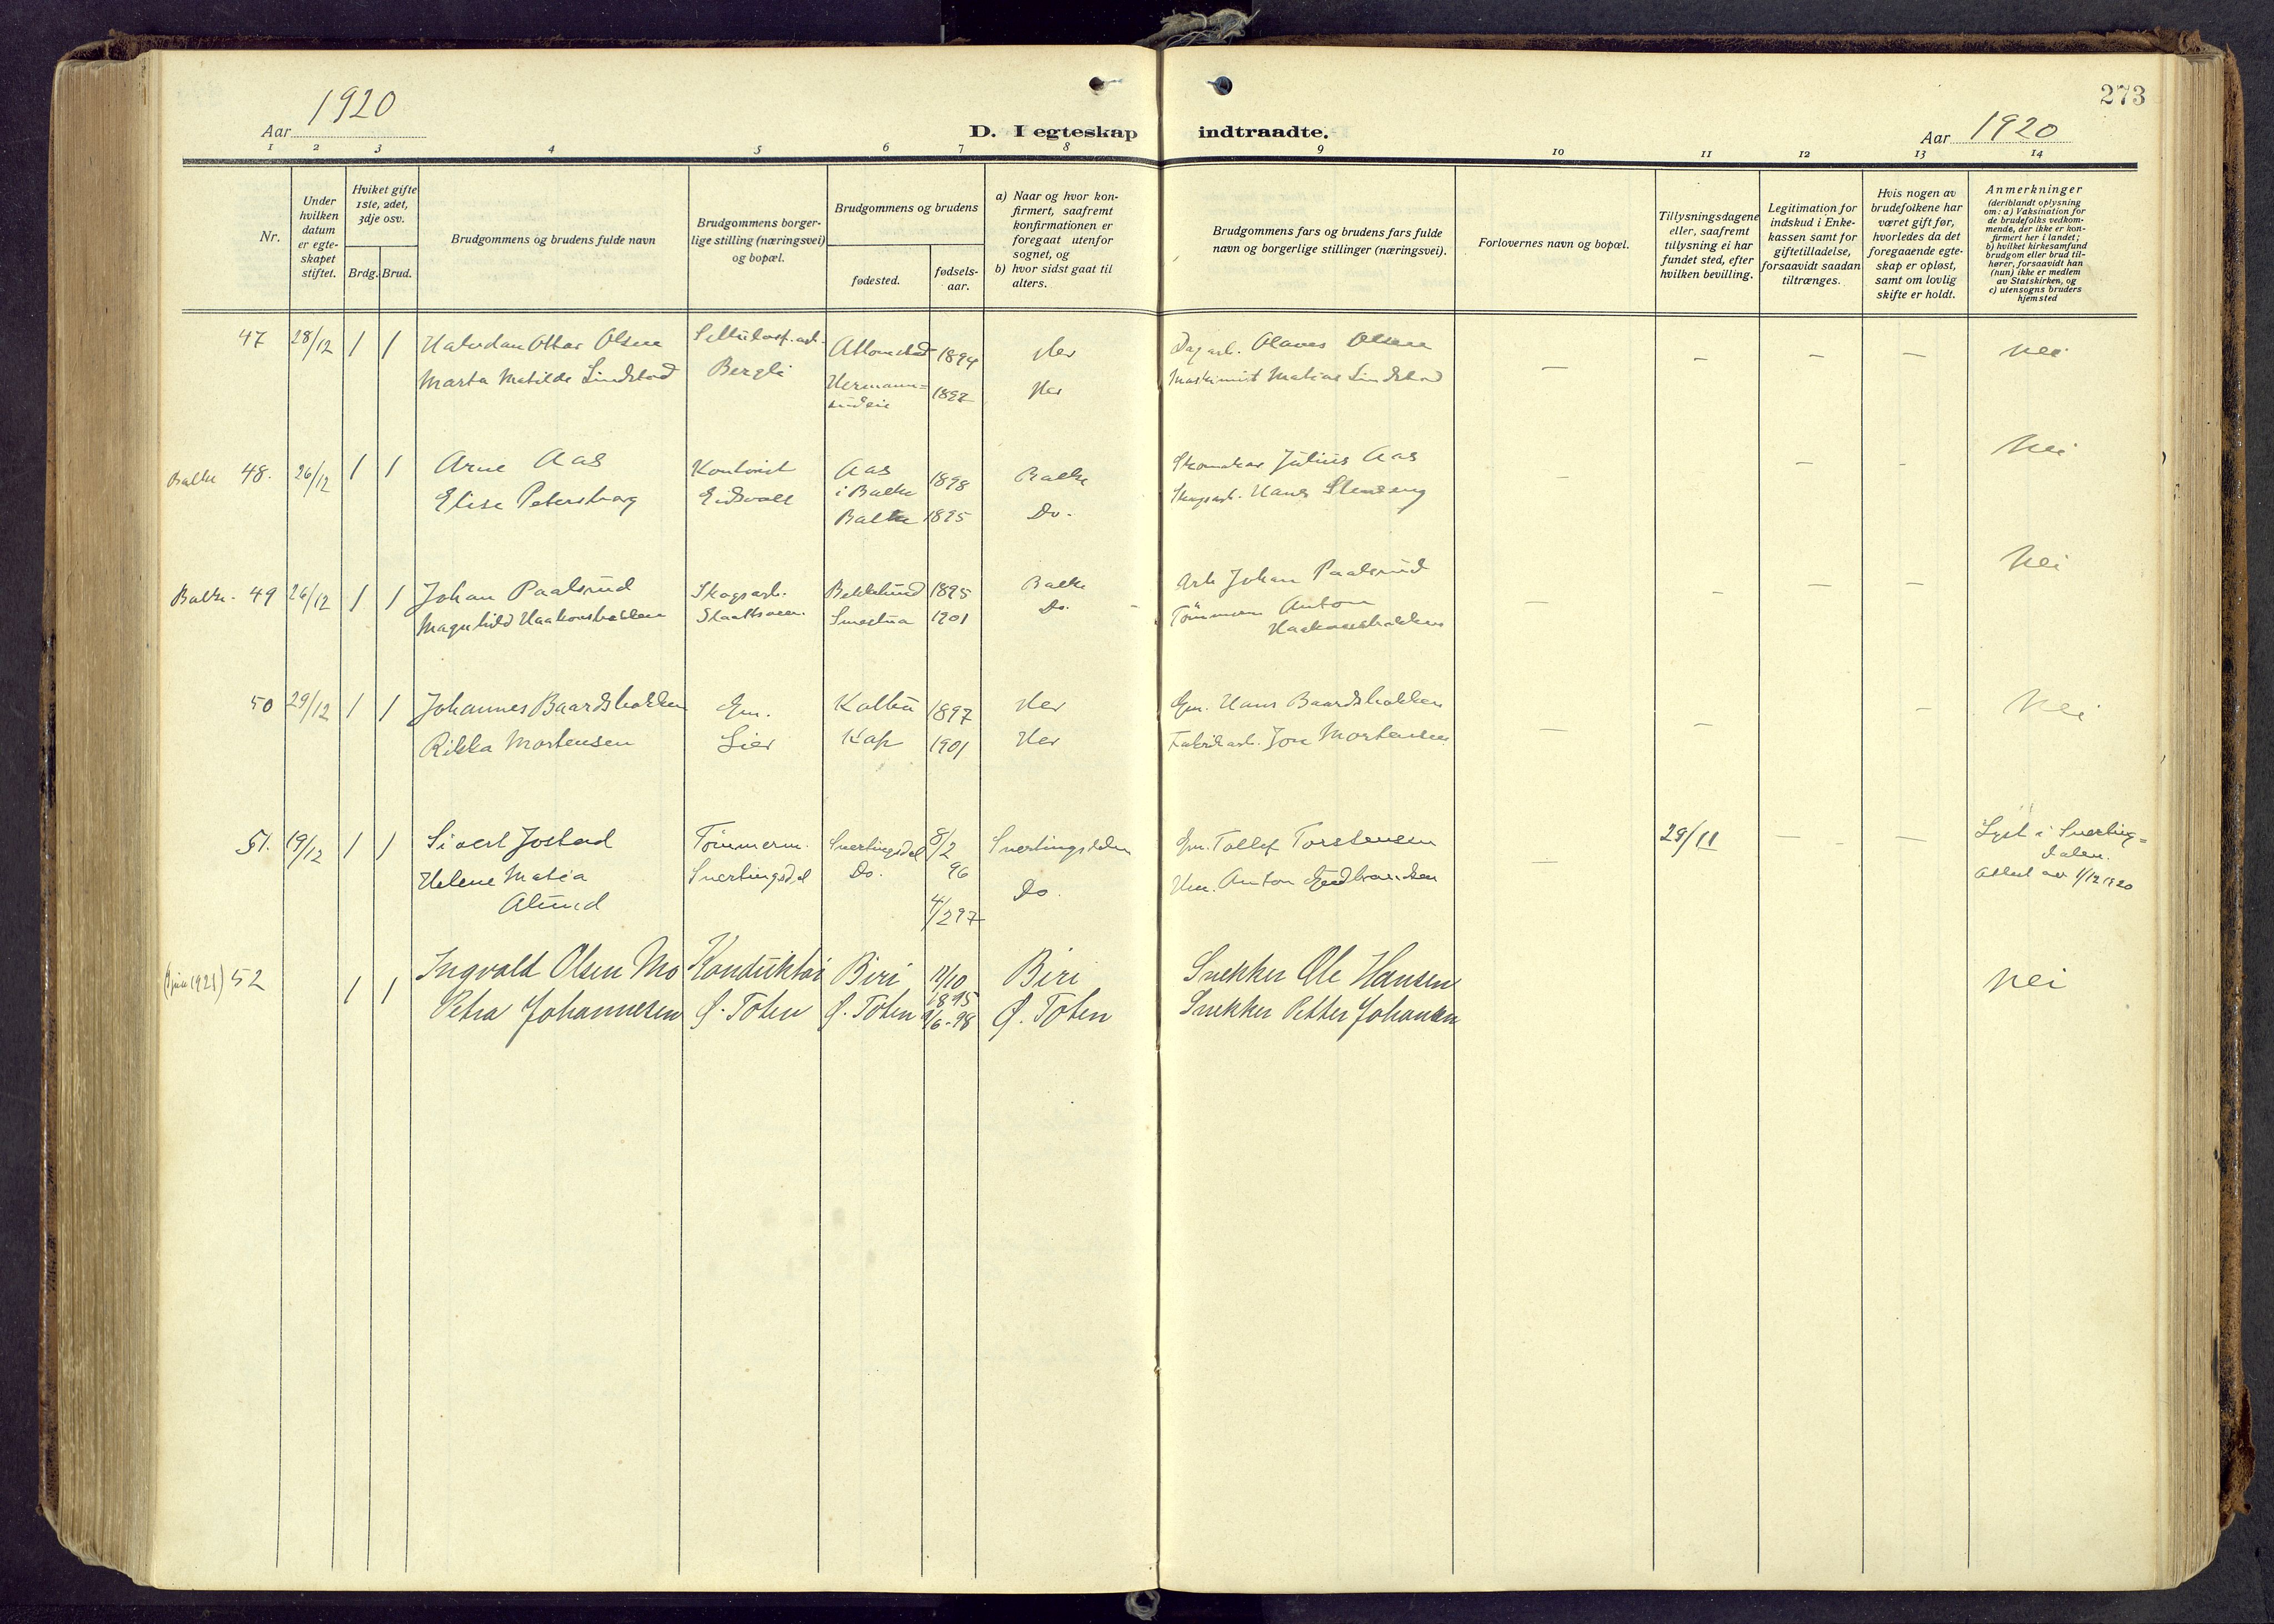 273
Aar 1920
D. I egteskap indtraadte.
Aar 1920
1 2 3 4 5 6 7 8 9 10 11 12 13 14
Nr.
Under hvilken datum er egte-skapet stiftet.
Hviket gifte 1ste, 2det, 3dje osv.
Brdg. Brud.
Brudgommens og brudens fulde navn
Brudgommens borger-lige stilling (næringsvei) og bopæl.
Brudgommens og brudens
fødested.
fødsels-aar.
a) Naar og hvor kon-firmert, saafremt konfirmationen er foregaat utenfor sognet, og
b) hvor sidst gaat til alters.
Brudgommens fars og brudens fars fulde navn og borgerlige stillinger (næringsvei).
Forlovernes navn og bopæl.
Tillysningsdagene eller, saafremt tillysning ei har fundet sted, efter hvilken bevilling.
Legitimation for indskud i Enke-kassen samt for giftetilladelse, forsaavidt saadan tiltrænges.
Hvis nogen av brudefolkene har været gift før, hvorledes da det foregaaende egte-skap er opløst, samt om lovlig skifte er holdt.
Anmerkninger (deriblandt oplysning om: a) Vaksination for de brudefolks vedkom-mende, der ikke er kon-firmert her i landet; b) hvilket kirkesamfund brudgom eller brud til-hører, forsaavidt han (hun) ikke er medlem av Statskirken, og c) utensogns bruders hjemsted
47 28/12 1 1 Halvdan Ottar Olsen 1894 Her Dagarb. Olaves Olsen — — — — nei
Marta Matilde Lindstad Bergli Hermann=
1897 Her Maskinist Matias Lindstad
Balke 48. 26/12 1 1 Arne Aas Kontorist Aas 1898 Balke Skomaker Julius Aas — — — Nei
Elise Petersborg Eidsvoll i Balke
Balke 1895 Do. Skogsarb. Hans
Balke. 49 26/12 1 1 Johan Paalsrud Skogsarb. Bekkelund 1895 Balke Arb Johan Paalsrud — — — — Nei
Magnhild Haakonsbakken 1901 Do. Tømmerm Anton
Haakonsbakken
50 29/12 1 1 Johannes Baardsbakken Gm. Kolbu 1897 Her Gm. Hans Baardsbakken — — — Nei
Rikka Mortensen Lier Kap 1901 Her Fabrikarb. Jon Mortensen
51. 19/12 1 1 Sivert Jostad Tømmerm. Snertingsdal 8/2 96 Snertingsdalen Gm. Tollef Torstensen — 29/11 — — Lyst i Snerting=
dalen.
Helene Matea Snertingsdal Do. Do. Anton Attest av 1/12 1920
Alund 4/2 97
52 1 1 Ingvald Olsen Mo Konduktør Biri 1895 Biri Snekker Ole Hansen nei
Petra Johannesen Ø. Toten Ø. Toten 98 Ø. Toten Snekker Petter Johansen